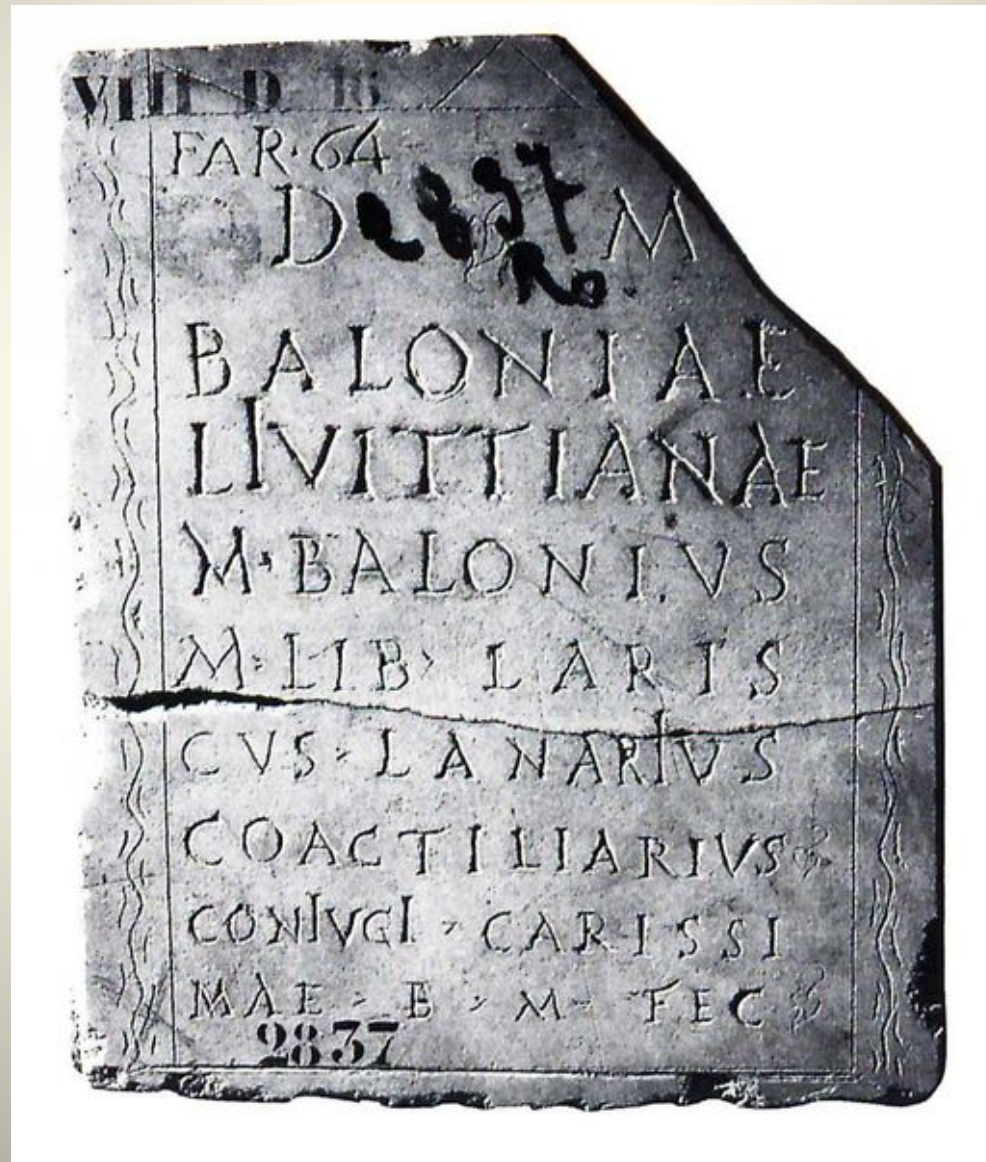 VIIII D 16
FAR·64
D M
2837
Ro
BALONIAE
LIVITTIANAE
M·BALONIVS
M·LIB·LARIS
CVS·LANARIVS
COACTILIARIVS
CONIVGI·CARISSI
MAE·B·M·FEC
2837